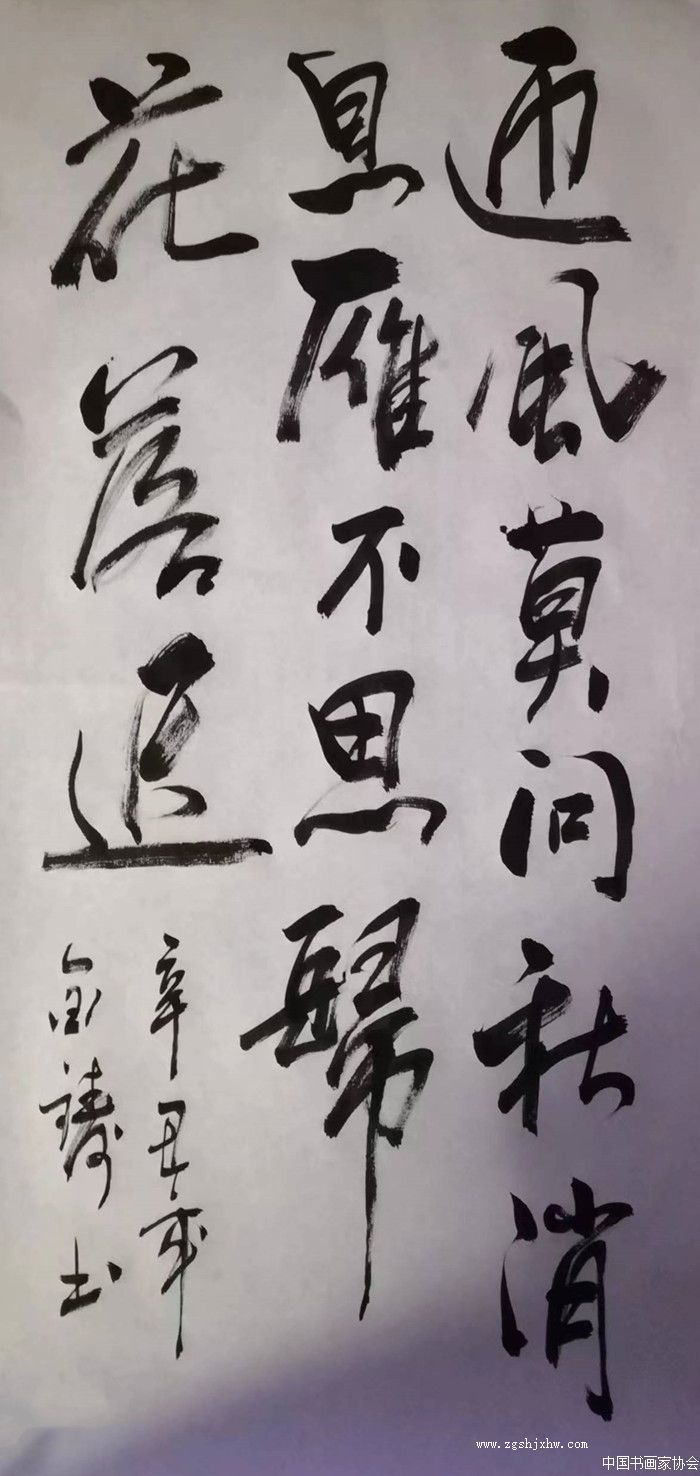 迎風莫问秋消
息雁不思歸
花落迟
辛丑年
书
www.zgshjxhw.com
中国书画家协会